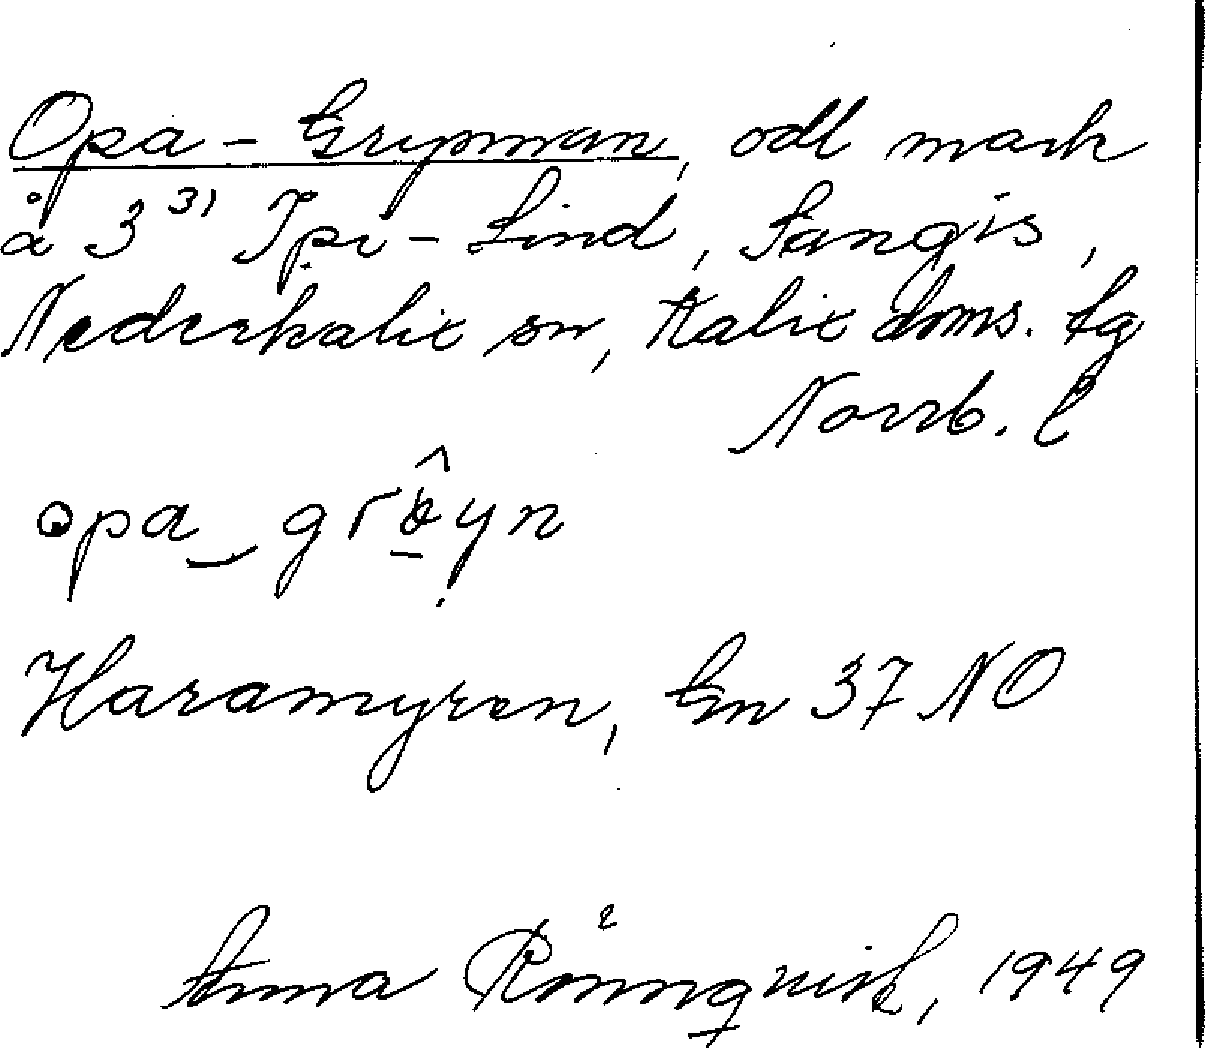 Opa-Grynnan, odl mark
å 3³¹ Ipi-Lind, Sangis,
Nederkalix sn, Kalix doms. tg
Norrb. l
opa
Haramyren, Gn 37 NO
Anna Rönnquist, 1949